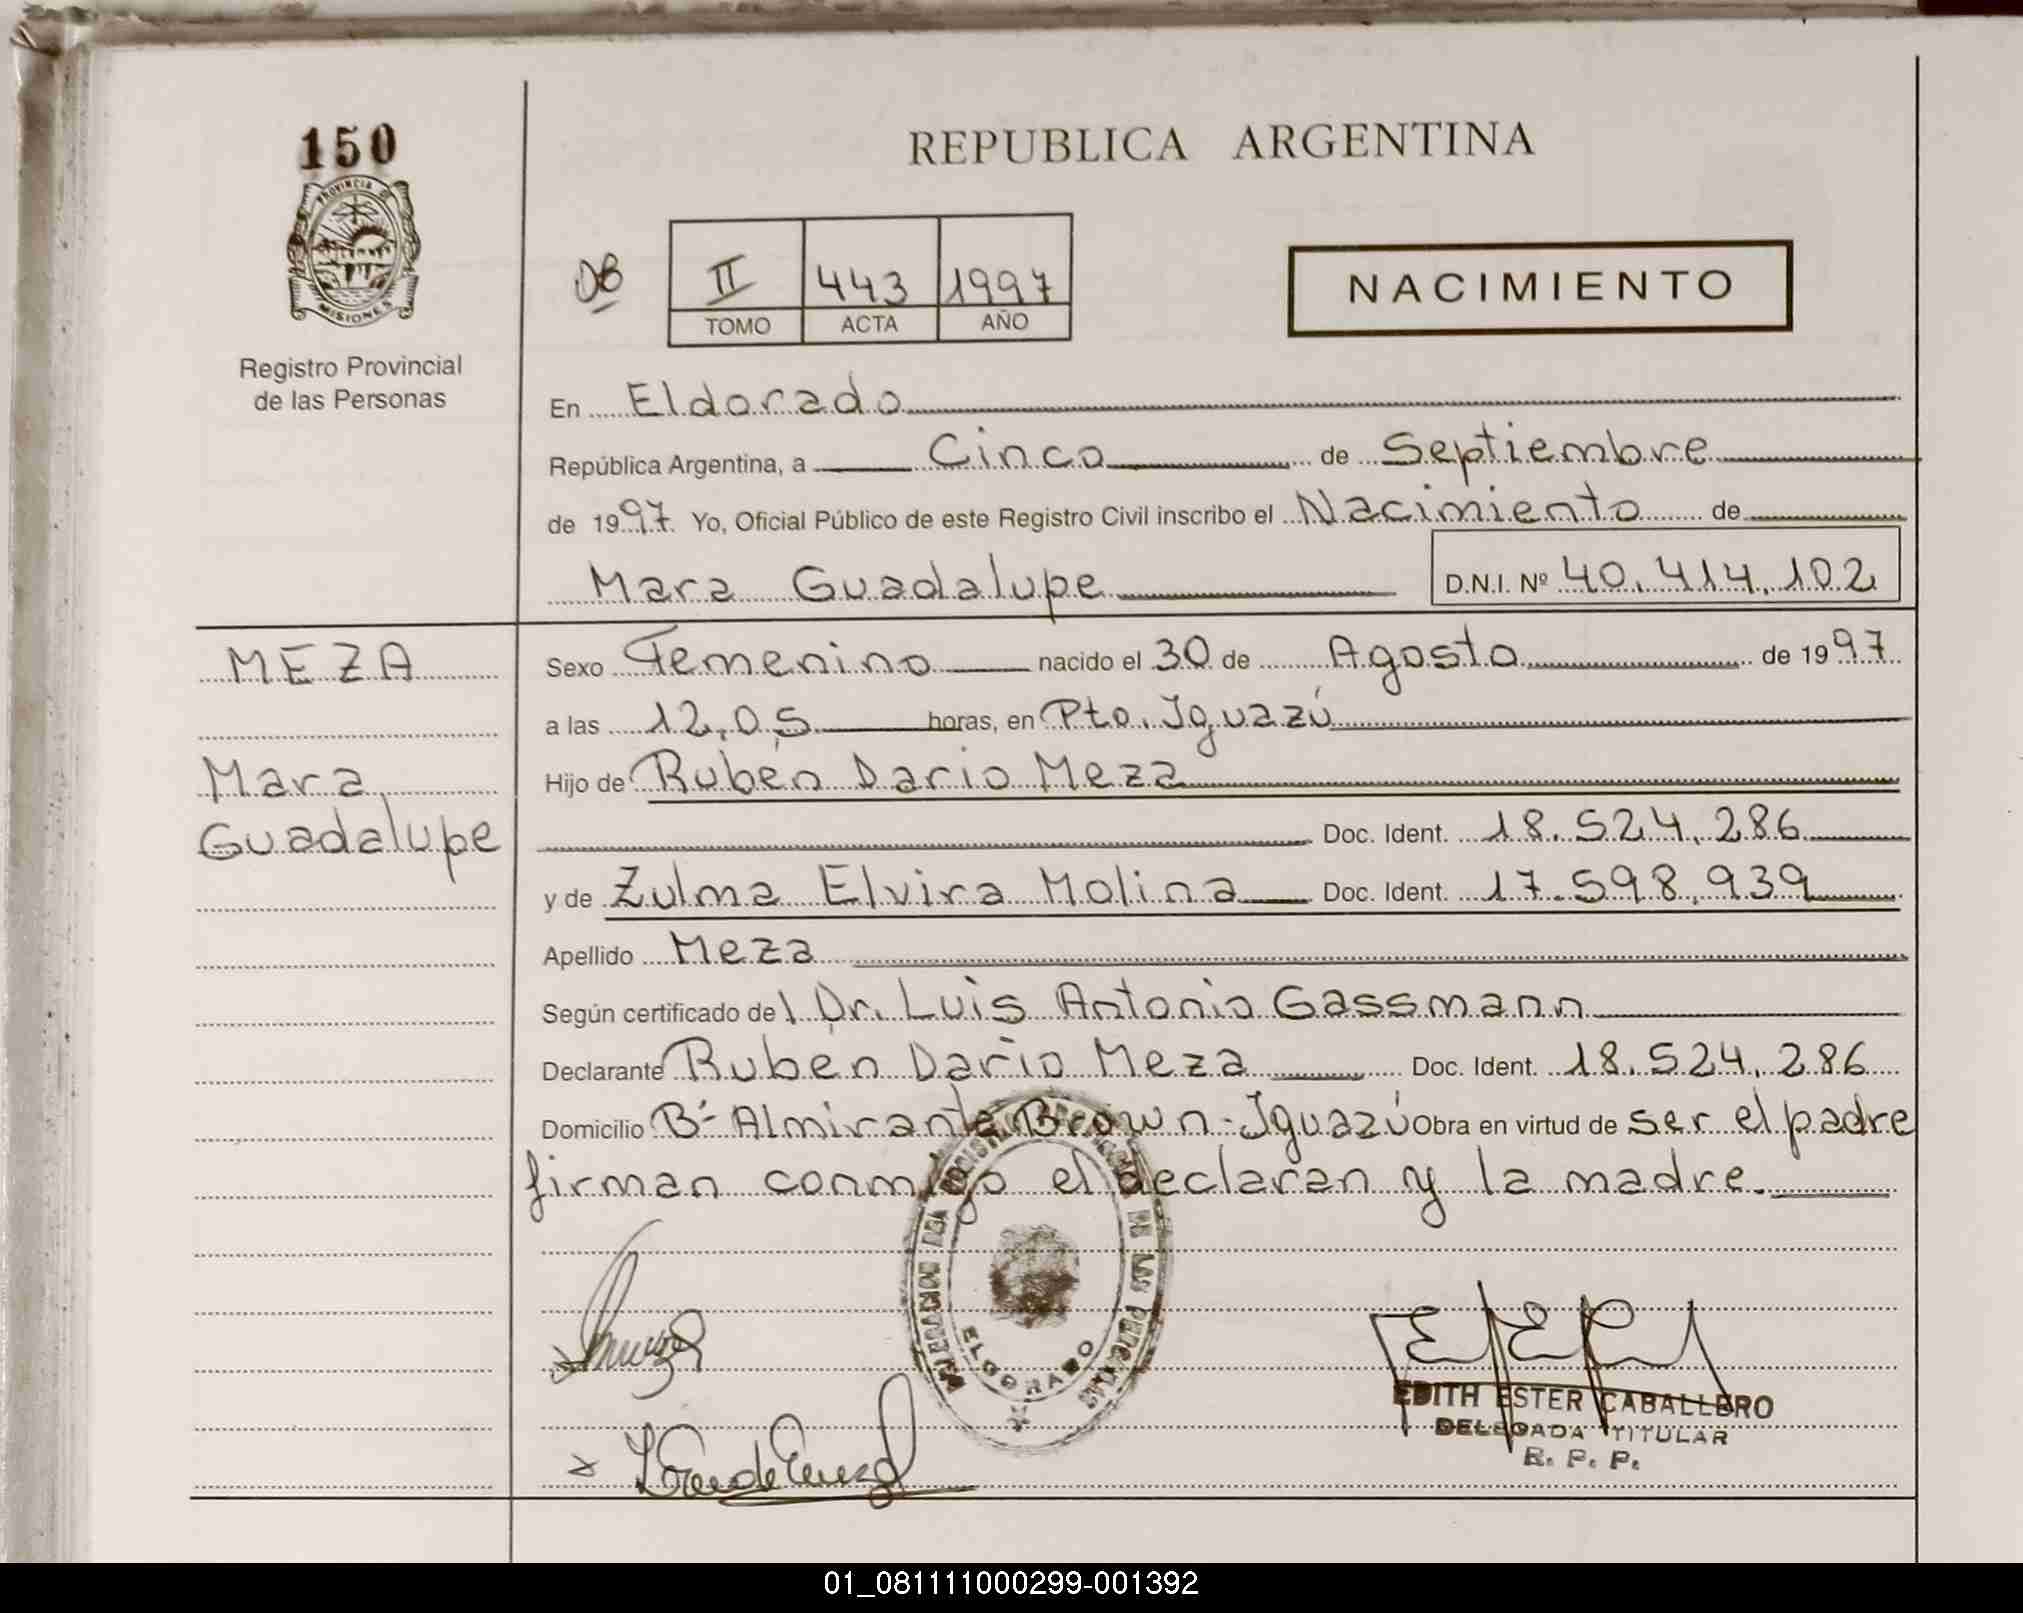 150
PROVINCIA DE
MISIONES
Registro Provincial
de las Personas
REPUBLICA ARGENTINA
DB
II 443 1997
TOMO ACTA AÑO
NACIMIENTO
En Eldorado
República Argentina, a Cinco de Septiembre
de 1997. Yo, Oficial Público de este Registro Civil inscribo el Nacimiento de
Mara Guadalupe D.N.I. Nº 40.414.102
MEZA
Mara
Guadalupe
Sexo Femenino nacido el 30 de Agosto de 1997
a las 12,05 horas, en Pto. Iguazú
Hijo de Rubén Dario Meza
Doc. Ident. 18.524.286
y de Zulma Elvira Molina Doc. Ident. 17.598.939
Apellido Meza
Según certificado del Dr. Luis Antonio Gassmann
Declarante Rubén Darío Meza Doc. Ident. 18.524.286
Domicilio Bº Almirante Brown-Iguazú Obra en virtud de ser el padre
firman conmigo el declaran y la madre.
ELDORADO
EDITH ESTER CABALLERO
DELEGADA TITULAR
R. P. P.
01_081111000299-001392